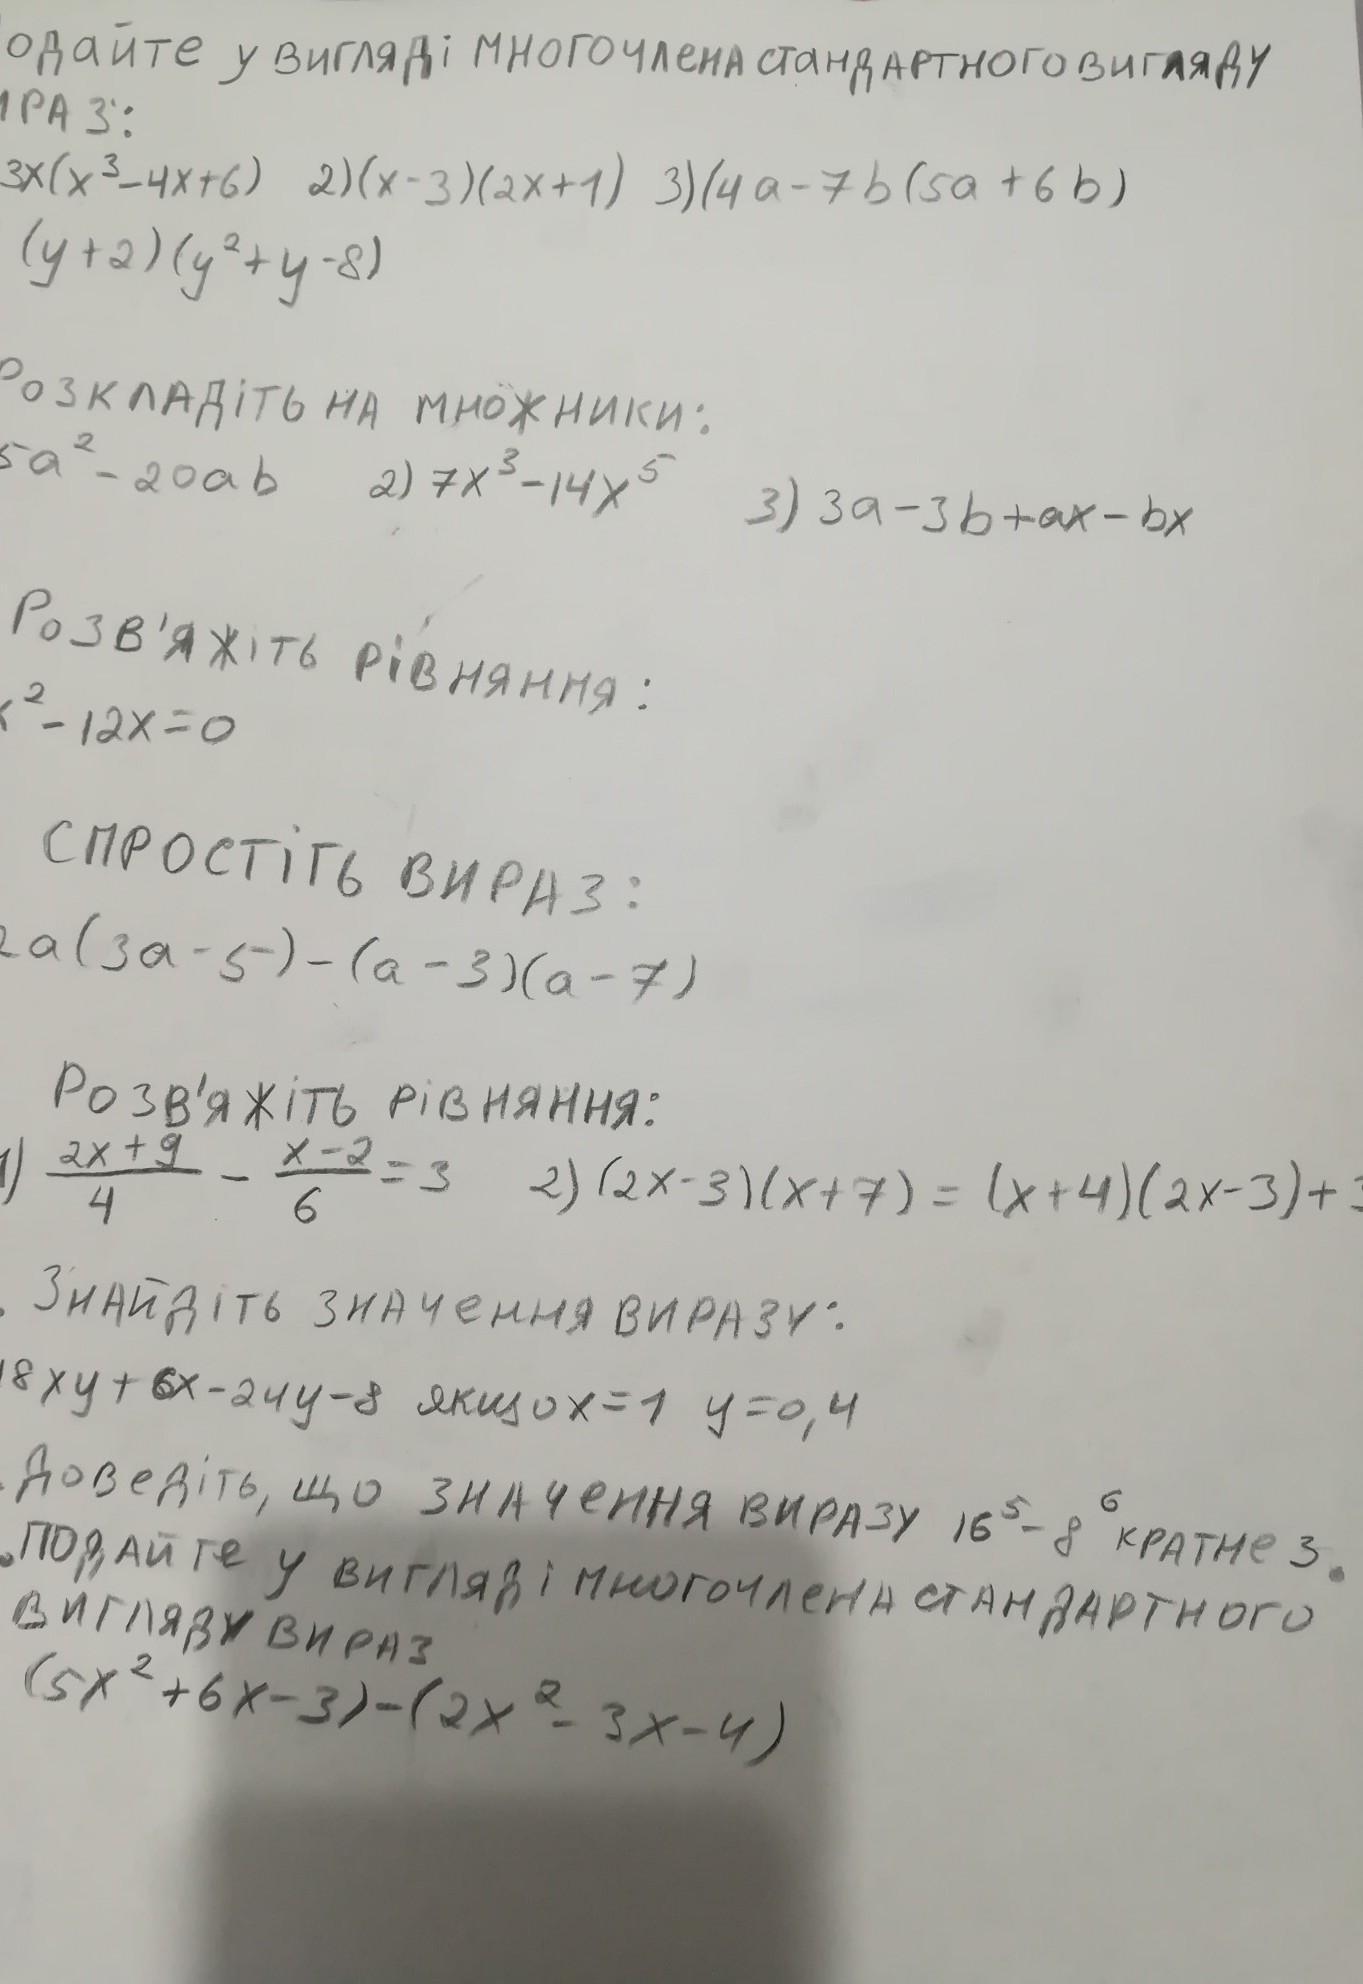 одайте у вигляді многочлена стандартного вигляду
РАЗ:
3x(x³-4x+6) 2)(x-3)(2x+1) 3)(4a-7b(5a+6b)
(y+2)(y²+y-8)
Розкладіть на множники:
5a²-20ab 2) 7x³-14x⁵ 3) 3a-3b+ax-bx
Розв'яжіть рівняння:
x²-12x=0
Спростіть вираз:
2a(3a-5)-(a-3)(a-7)
Розв'яжіть рівняння:
1) (2x+9)/4 - (x-2)/6 = 3 2)(2x-3)(x+7)=(x+4)(2x-3)+3
. Знайдіть значення виразу:
18xy+6x-24y-8 якщо x=1 y=0,4
. Доведіть, що значення виразу 16⁵-8⁶ кратне 3.
. Подайте у вигляді многочлена стандартного
вигляду вираз
(5x²+6x-3)-(2x²-3x-4)